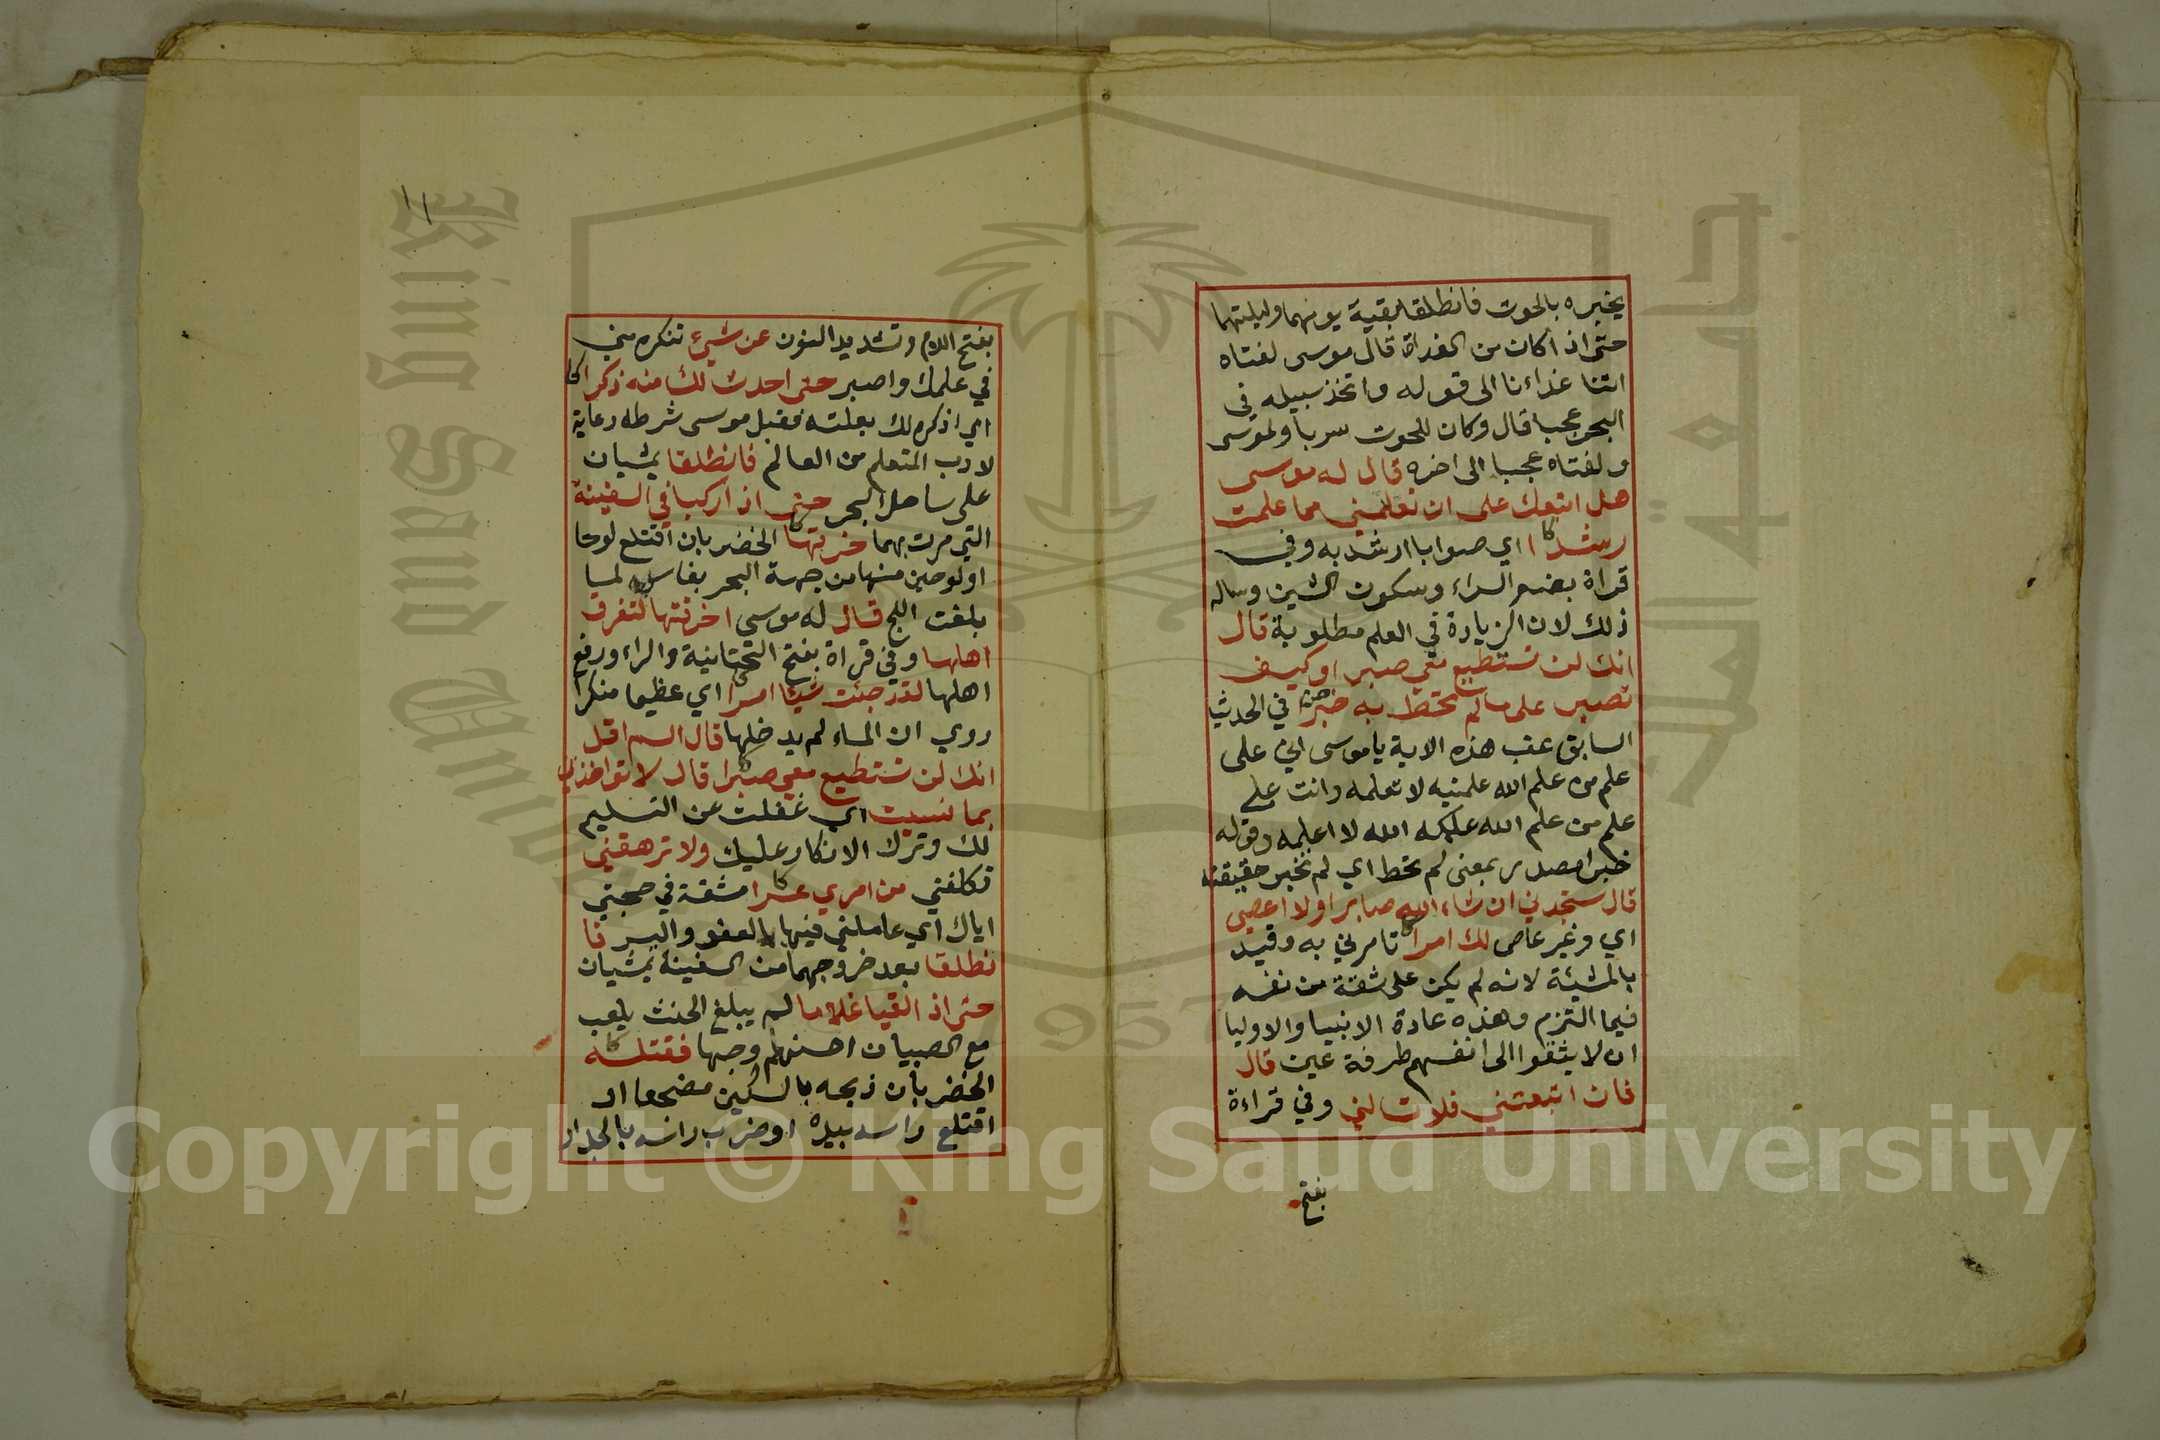 يخبره بالحوت فانطلقا بقية يومهما وليلتهما
حتى اذا كان من الغداة قال موسى لفتاه
اتنا غداءنا الى قوله واتخذ سبيله في
البحر عجبا قال وكان للحوت سربا ولموسى
ولفتاه عجبا الى اخره قال له موسى
هل اتبعك على ان تعلمني مما علمت
رشدا اي صوابا ارشد به وفي
قراة بضم الراء وسكون الشين وساله
ذلك لان الزيادة في العلم مطلوبة قال
انك لن تستطيع معي صبرا وكيف
تصبر على مالم تحط به خبرا في الحديث
السابق عقب هذه الاية يا موسى اني على
علم من علم الله علمنيه لا تعلمه وانت على
علم من علم الله علمكه الله لا اعلمه وقوله
خبرا مصدر بمعنى لم تحط اي لم تخبر حقيقته
قال ستجدني ان شاء الله صابرا ولا اعصي
اي وغير عاص لك امرا تامرني به وقيد
بالمشيئة لانه لم يكن على ثقة من نفسه
فيما التزم وهذه عادة الانبيا والاوليا
ان لا يثقوا الى انفسهم طرفة عين قال
فان اتبعتني فلا تسالني وفي قراءة
بفتح
١١
بفتح اللام وتشديد النون عن شيء تنكره مني
في علمك واصبر حتى احدث لك منه ذكرا
اي اذكره لك بعلته فقبل موسى شرطه رعاية
لادب المتعلم من العالم فانطلقا يمشيان
على ساحل البحر حتى اذا ركبا في السفينة
التي مرت بهما خرقها الخضر بان اقتلع لوحا
او لوحين منها من جهة البحر بفاس لما
بلغت اللج قال له موسى اخرقتها لتغرق
اهلها وفي قراة بفتح التحتانية والراء ورفع
اهلها لقد جئت شيئا امرا اي عظيما منكرا
روي ان الماء لم يدخلها قال الم اقل
انك لن تستطيع معي صبرا قال لا تؤاخذني
بما نسيت اي غفلت عن التسليم
لك وترك الانكار عليك ولا ترهقني
تكلفني من امري عسرا مشقة في صحبتي
اياك اي عاملني فيها بالعفو واليسر فا
نطلقا بعد خروجهما من السفينة يمشيان
حتى اذا لقيا غلاما لم يبلغ الحنث يلعب
مع الصبيان احسنهم وجها فقتله
الخضر بأن ذبحه بالسكين مضجعا او
اقتلع راسه بيده او ضرب راسه بالجدار
Copyright © King Saud University
King Saud
1957